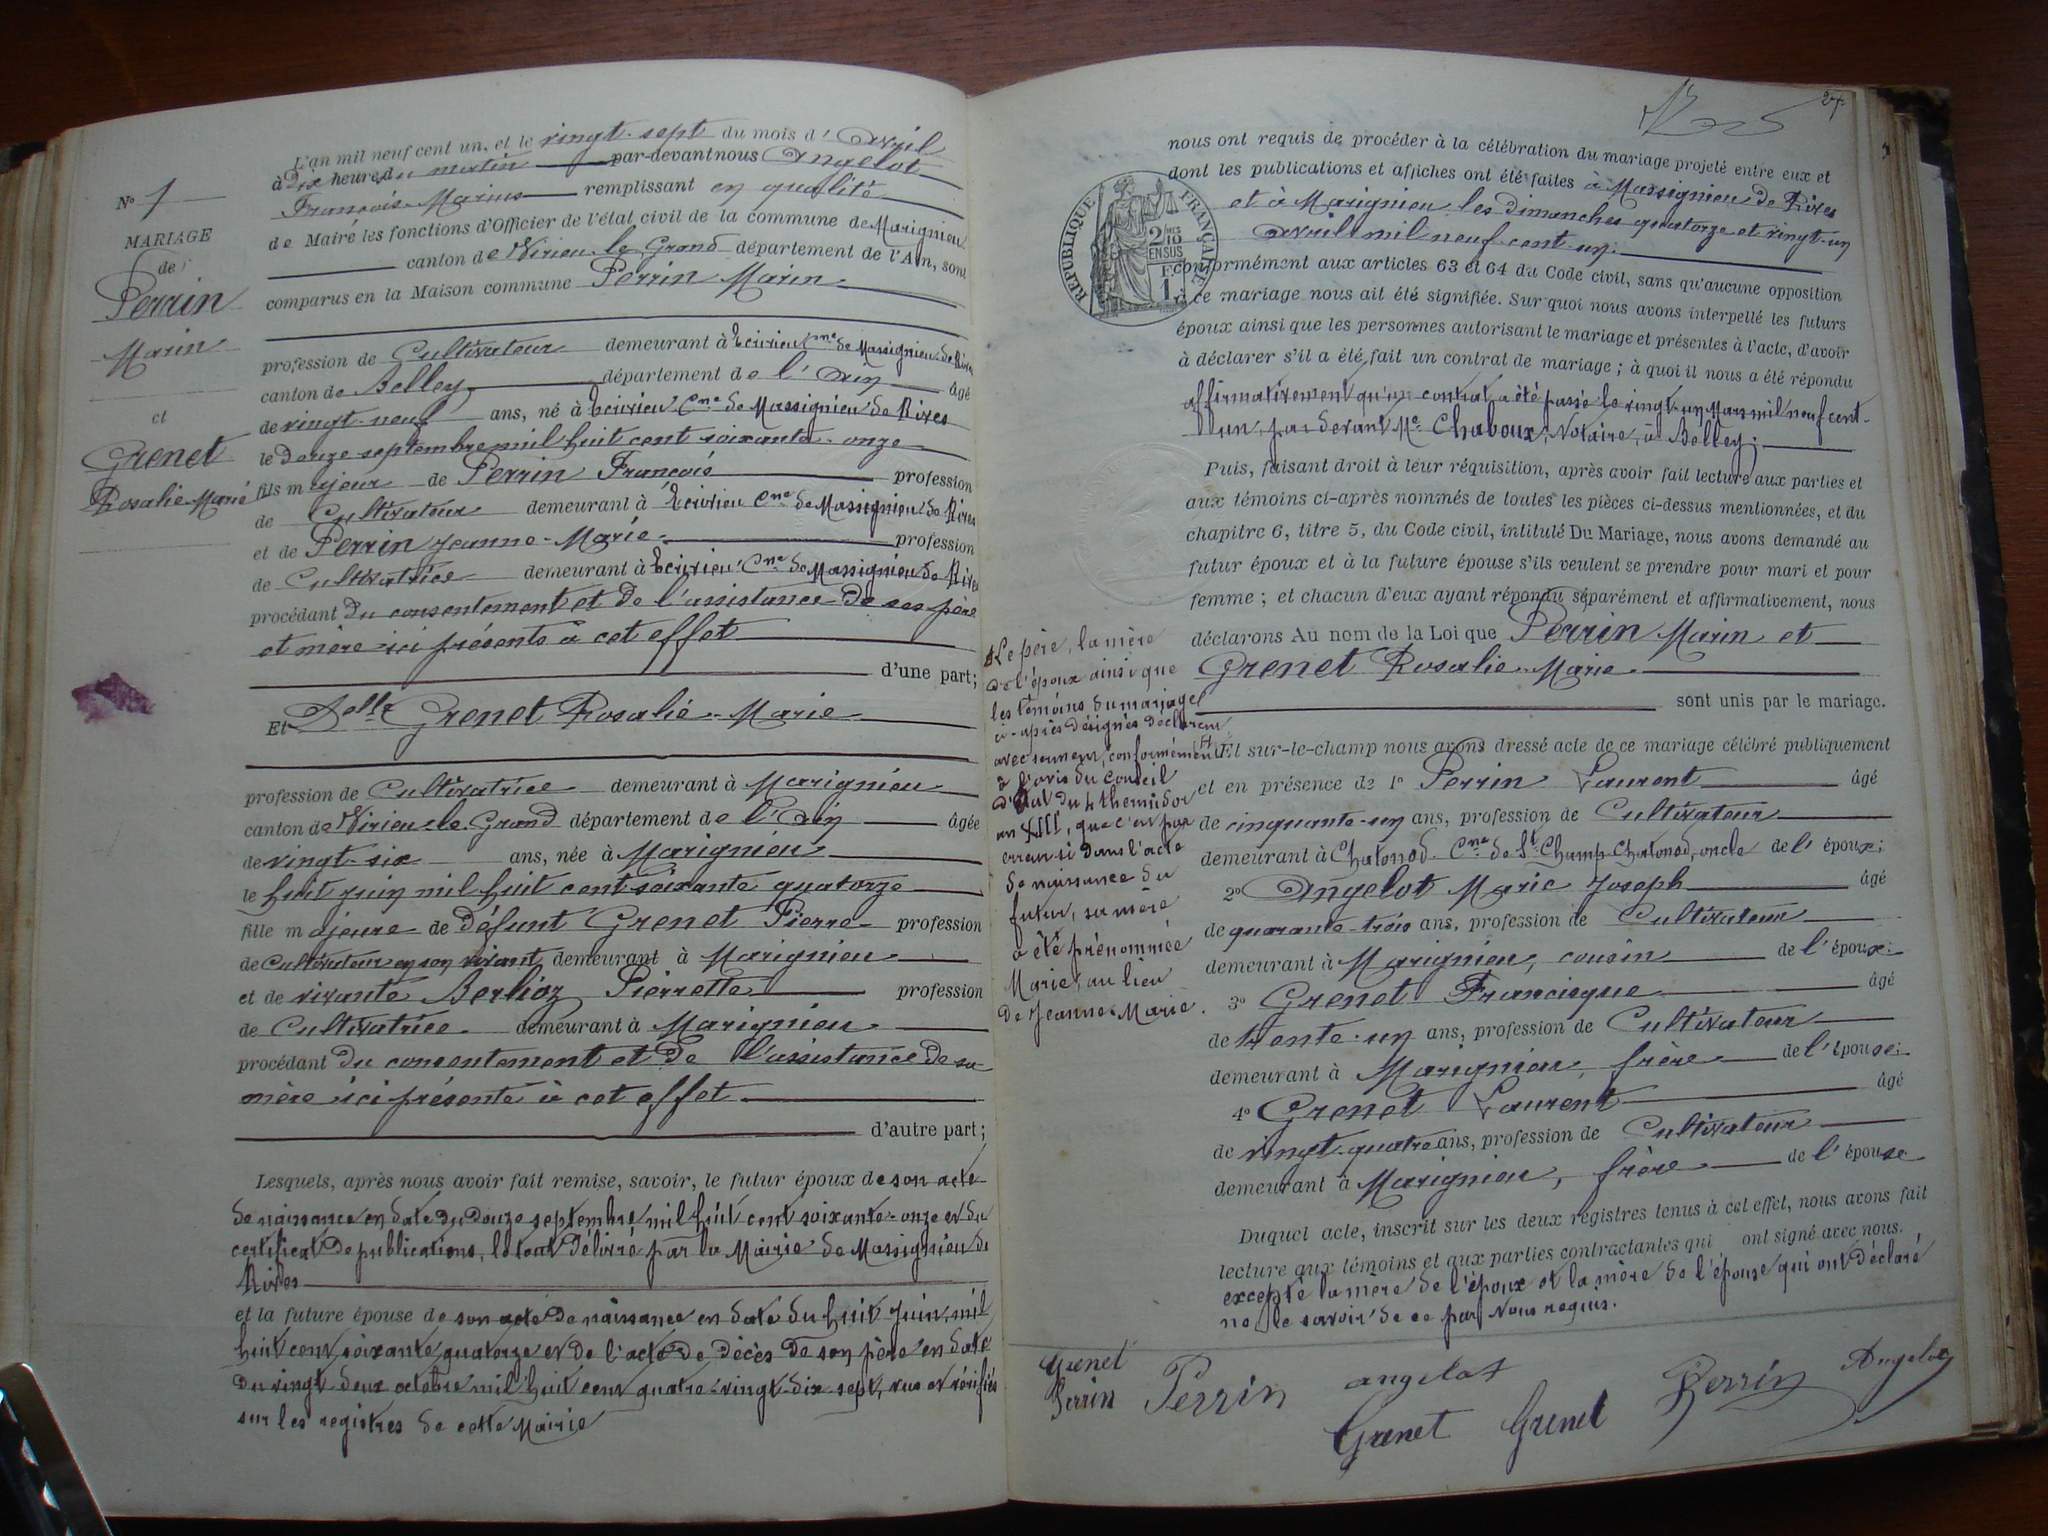 N° 1
MARIAGE
de
Perrin
Marin
et
Grenet
Rosalie-Marie
L'an mil neuf cent un, et le vingt-sept du mois d'Avril
à Dix heures du matin par-devant nous Angelot
François-Marius remplissant en qualité
de Maire les fonctions d'Officier de l'état civil de la commune de Marignieu
canton de Virieu-le-Grand département de l'Ain, sont
comparus en la Maison commune Perrin Marin
profession de Cultivateur demeurant à Ecrivieu Cne de Massignieu de Rives
canton de Belley département de l'Ain âgé
de vingt-neuf ans, né à Ecrivieu Cne de Massignieu de Rives
le douze septembre mil huit cent soixante-onze
fils majeur de Perrin François profession
de Cultivateur demeurant à Ecrivieu Cne de Massignieu de Rives
et de Perrin Jeanne-Marie profession
de Cultivatrice demeurant à Ecrivieu Cne de Massignieu de Rives
procédant du consentement et de l'assistance de ses père
et mère ici présents à cet effet
d'une part;
Et Delle Grenet Rosalie-Marie
profession de Cultivatrice demeurant à Marignieu
canton de Virieu-le-Grand département de l'Ain âgée
de vingt-six ans, née à Marignieu
le huit juin mil huit cent soixante quatorze
fille majeure de défunt Grenet Pierre profession
de Cultivateur en son vivant demeurant à Marignieu
et de vivante Berlioz Pierrette profession
de Cultivatrice demeurant à Marignieu
procédant du consentement et de l'assistance de sa
mère ici présente à cet effet
d'autre part;
Lesquels, après nous avoir fait remise, savoir, le futur époux de son acte
de naissance en date du douze septembre mil huit cent soixante-onze et du
certificat de publications, le tout délivré par la Mairie de Massignieu de
Rives
et la future épouse de son acte de naissance en date du huit Juin, mil
huit cent soixante quatorze et de l'acte de décès de son père en date
du vingt deux octobre mil huit cent quatre-vingt-dix-sept, vus et vérifiés
sur les registres de cette Mairie
27
nous ont requis de procéder à la célébration du mariage projeté entre eux et
dont les publications et affiches ont été faites à Massignieu de Rives
et à Marignieu les dimanches quatorze et vingt-un
avril mil neuf cent un.
RÉPUBLIQUE FRANÇAISE
2/10
EN SUS
1 F
conformément aux articles 63 et 64 du Code civil, sans qu'aucune opposition
à ce mariage nous ait été signifiée. Sur quoi nous avons interpellé les futurs
époux ainsi que les personnes autorisant le mariage et présentes à l'acte, d'avoir
à déclarer s'il a été fait un contrat de mariage; à quoi il nous a été répondu
affirmativement qu'un contrat a été passé le vingt-un Mars mil neuf cent-
un, par devant Me Chaboux, Notaire, à Belley.
Puis, faisant droit à leur réquisition, après avoir fait lecture aux parties et
aux témoins ci-après nommés de toutes les pièces ci-dessus mentionnées, et du
chapitre 6, titre 5, du Code civil, intitulé Du Mariage, nous avons demandé au
futur époux et à la future épouse s'ils veulent se prendre pour mari et pour
femme; et chacun d'eux ayant répondu séparément et affirmativement, nous
déclarons Au nom de la Loi que Perrin Marin et
Grenet Rosalie-Marie
sont unis par le mariage.
Le père, la mère
de l'époux ainsi que
les témoins du mariage
ci-après désignés déclarent
avec serment, conformément
à l'avis du Conseil
d'Etat du 4 thermidor
an XIII, que c'est par
erreur si dans l'acte
de naissance du
futur, sa mère
a été prénommée
Marie, au lieu
de Jeanne-Marie.
Et sur-le-champ nous avons dressé acte de ce mariage célébré publiquement
et en présence de 1° Perrin Laurent âgé
de cinquante-un ans, profession de Cultivateur
demeurant à Chatonod Cne de St Champ-Chatonod, oncle de l'époux;
2° Angelot Marie Joseph âgé
de quarante-trois ans, profession de Cultivateur
demeurant à Marignieu, cousin de l'époux;
3° Grenet Francisque âgé
de trente-un ans, profession de Cultivateur
demeurant à Marignieu, frère de l'épouse;
4° Grenet Laurent âgé
de vingt-quatre ans, profession de Cultivateur
demeurant à Marignieu, frère de l'épouse
Duquel acte, inscrit sur les deux registres tenus à cet effet, nous avons fait
lecture aux témoins et aux parties contractantes qui ont signé avec nous.
excepté la mère de l'époux et la mère de l'épouse qui ont déclaré
ne le savoir de ce par Nous requis.
Grenet
Perrin Perrin angelot Perrin Angelot
Grenet Grenet